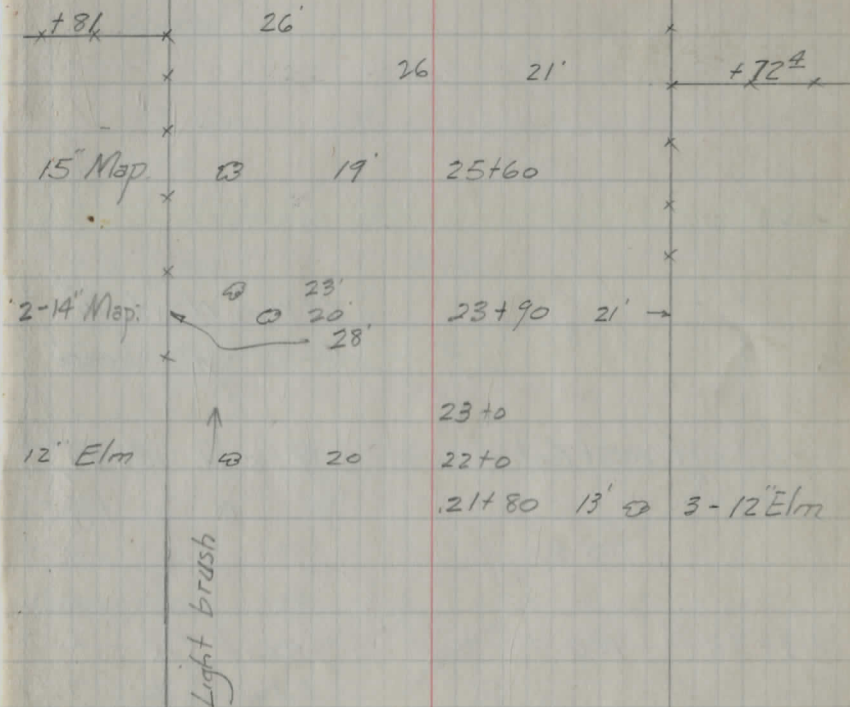 +81 26'
26 21' +72⁴
15" Map. 19' 25+60
23'
2-14" Map. 20' 23+90 21'
28'
23+0
12" Elm 20 22+0
21+80 13' 3-12" Elm
Light brush